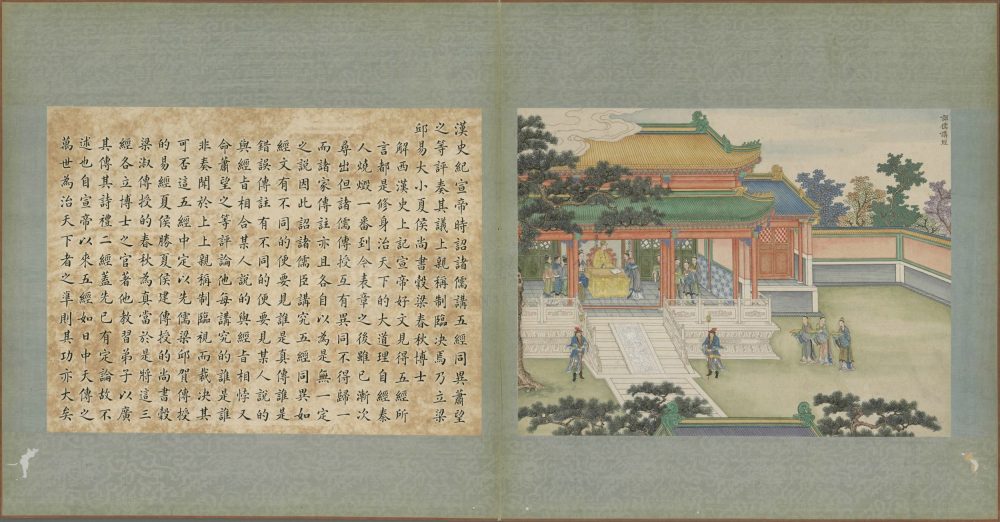 詔儒講經
漢史紀宣帝時詔諸儒講五經同異蕭望
之等評奏其議上親稱制臨決焉乃立梁
邱易大小夏侯尚書穀梁春秋博士
解西漢史上記宣帝好文見得五經所
言都是修身治天下的大道理自經秦
人燒燬一番到今表章之後雖已漸次
尋出但諸儒傳授互有異同不得歸一
而諸家傳註亦且各自以為是無一定
之說因此詔諸儒臣講究五經同異如
經文有不同的便要見誰是真傳誰是
錯誤傳註有不同的便要見某人說的
與經旨相合某人說的與經旨相悖又
命蕭望之等評論他每講究的誰是誰
非奏聞於上上親稱制臨視而裁決其
可否這五經中定以先儒梁邱賀傳授
的易經夏侯勝夏侯建傳授的尚書穀
梁淑傳授的春秋為真當於是將這三
經各立博士之官著他教習弟子以廣
其傳其詩禮二經蓋先已有定論故不
述也自宣帝以來五經如日中天傳之
萬世為治天下者之準則其功亦大矣